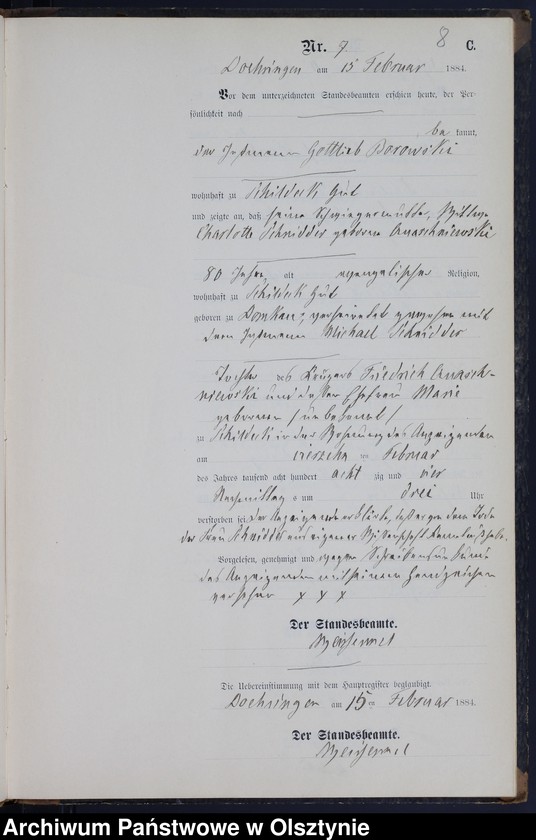 8
Nr. 7. C.
Doehringen am 15 Februar 1884.
Vor dem unterzeichneten Standesbeamten erschien heute, der Per-
sönlichkeit nach
be kannt,
der Instmann Gottlieb Borowski
wohnhaft zu Schildeck Gut
und zeigte an, daß seine Schwiegermutter, Wittwe
Charlotte Schnidder geborne
80 Jahre, alt evangelischer Religion,
wohnhaft zu Schildeck Gut
geboren zu verheirathet gewesen mit
dem Instmann Michael Schnidder
Tochter des Krügers Friedrich
und dessen Ehefrau Marie
geborenen /unbekannt/
zu Schildeck in der Wohnung des Anzeigenden
am vierzehn ten Februar
des Jahres tausend acht hundert acht zig und vier
Nachmittag s um drei Uhr
verstorben sei. Der Anzeigende erklärte, daß er von dem Tode
der Frau Schnidder aus eigener Wissenschaft Kenntniß habe.
Vorgelesen, genehmigt und wegen Schreibensunkunde
des Anzeigenden mit seinem Handzeichen
versehen x x x
Der Standesbeamte.
Die Uebereinstimmung mit dem Hauptregister beglaubigt.
Doehringen am 15ten Februar 1884.
Der Standesbeamte.
Archiwum Państwowe w Olsztynie